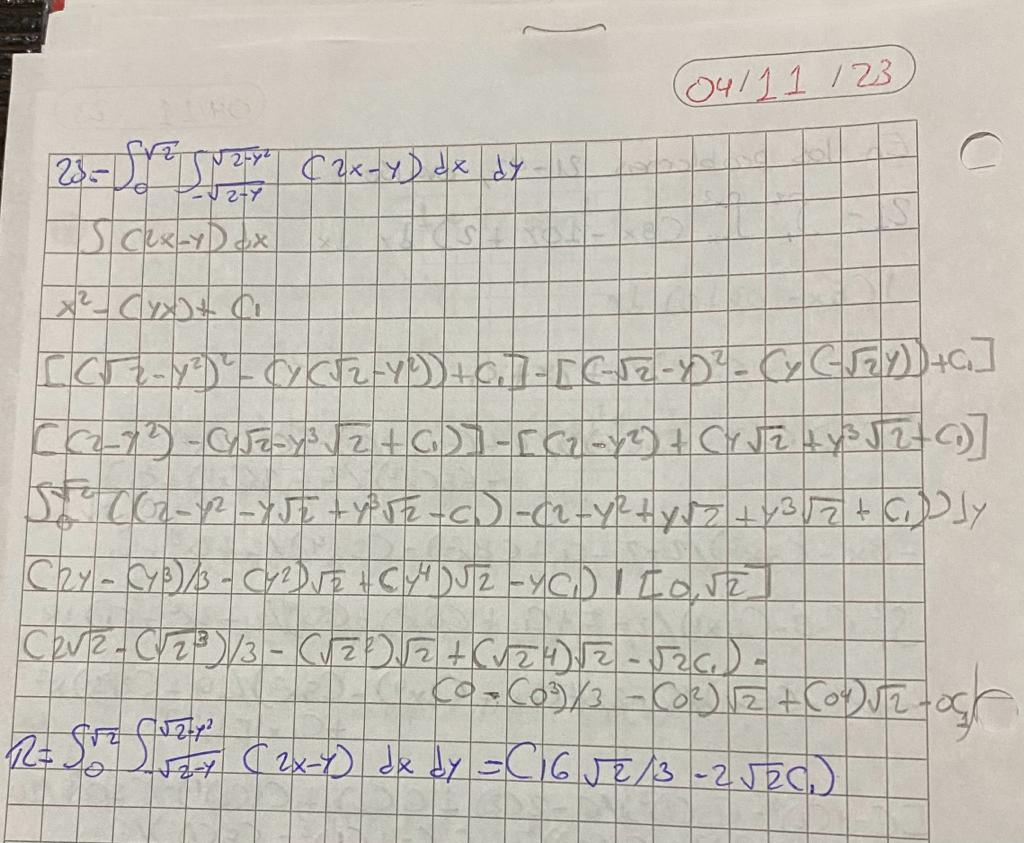 04/11/23
23= ∫₀^√2 ∫_{-√2-y}^{√2-y²} (2x-y) dx dy
∫ (2x-y) dx
x² - (yx) + C₁
[(√2-y²)² - (y(√2-y²)) + C₁] - [(-√2-y)² - (y(-√2y)) + C₁]
[(2-y²) - (y√2-y³√2 + C₁)] - [(2-y²) + (y√2 + y³√2 + C₁)]
∫₀^√2 ((2-y² - y√2 + y³√2 - C₁) - (2-y² + y√2 + y³√2 + C₁)) dy
(2y - (y³)/3 - (y²)√2 + (y⁴)√2 - yC₁) | [0,√2]
(2√2 - (√2³)/3 - (√2²)√2 + (√2⁴)√2 - √2C₁) -
(0 - (0³)/3 - (0²)√2 + (0⁴)√2 -
R= ∫₀^√2 ∫_{√2-y}^{√2-y²} (2x-y) dx dy = (16√2/3 - 2√2C₁)